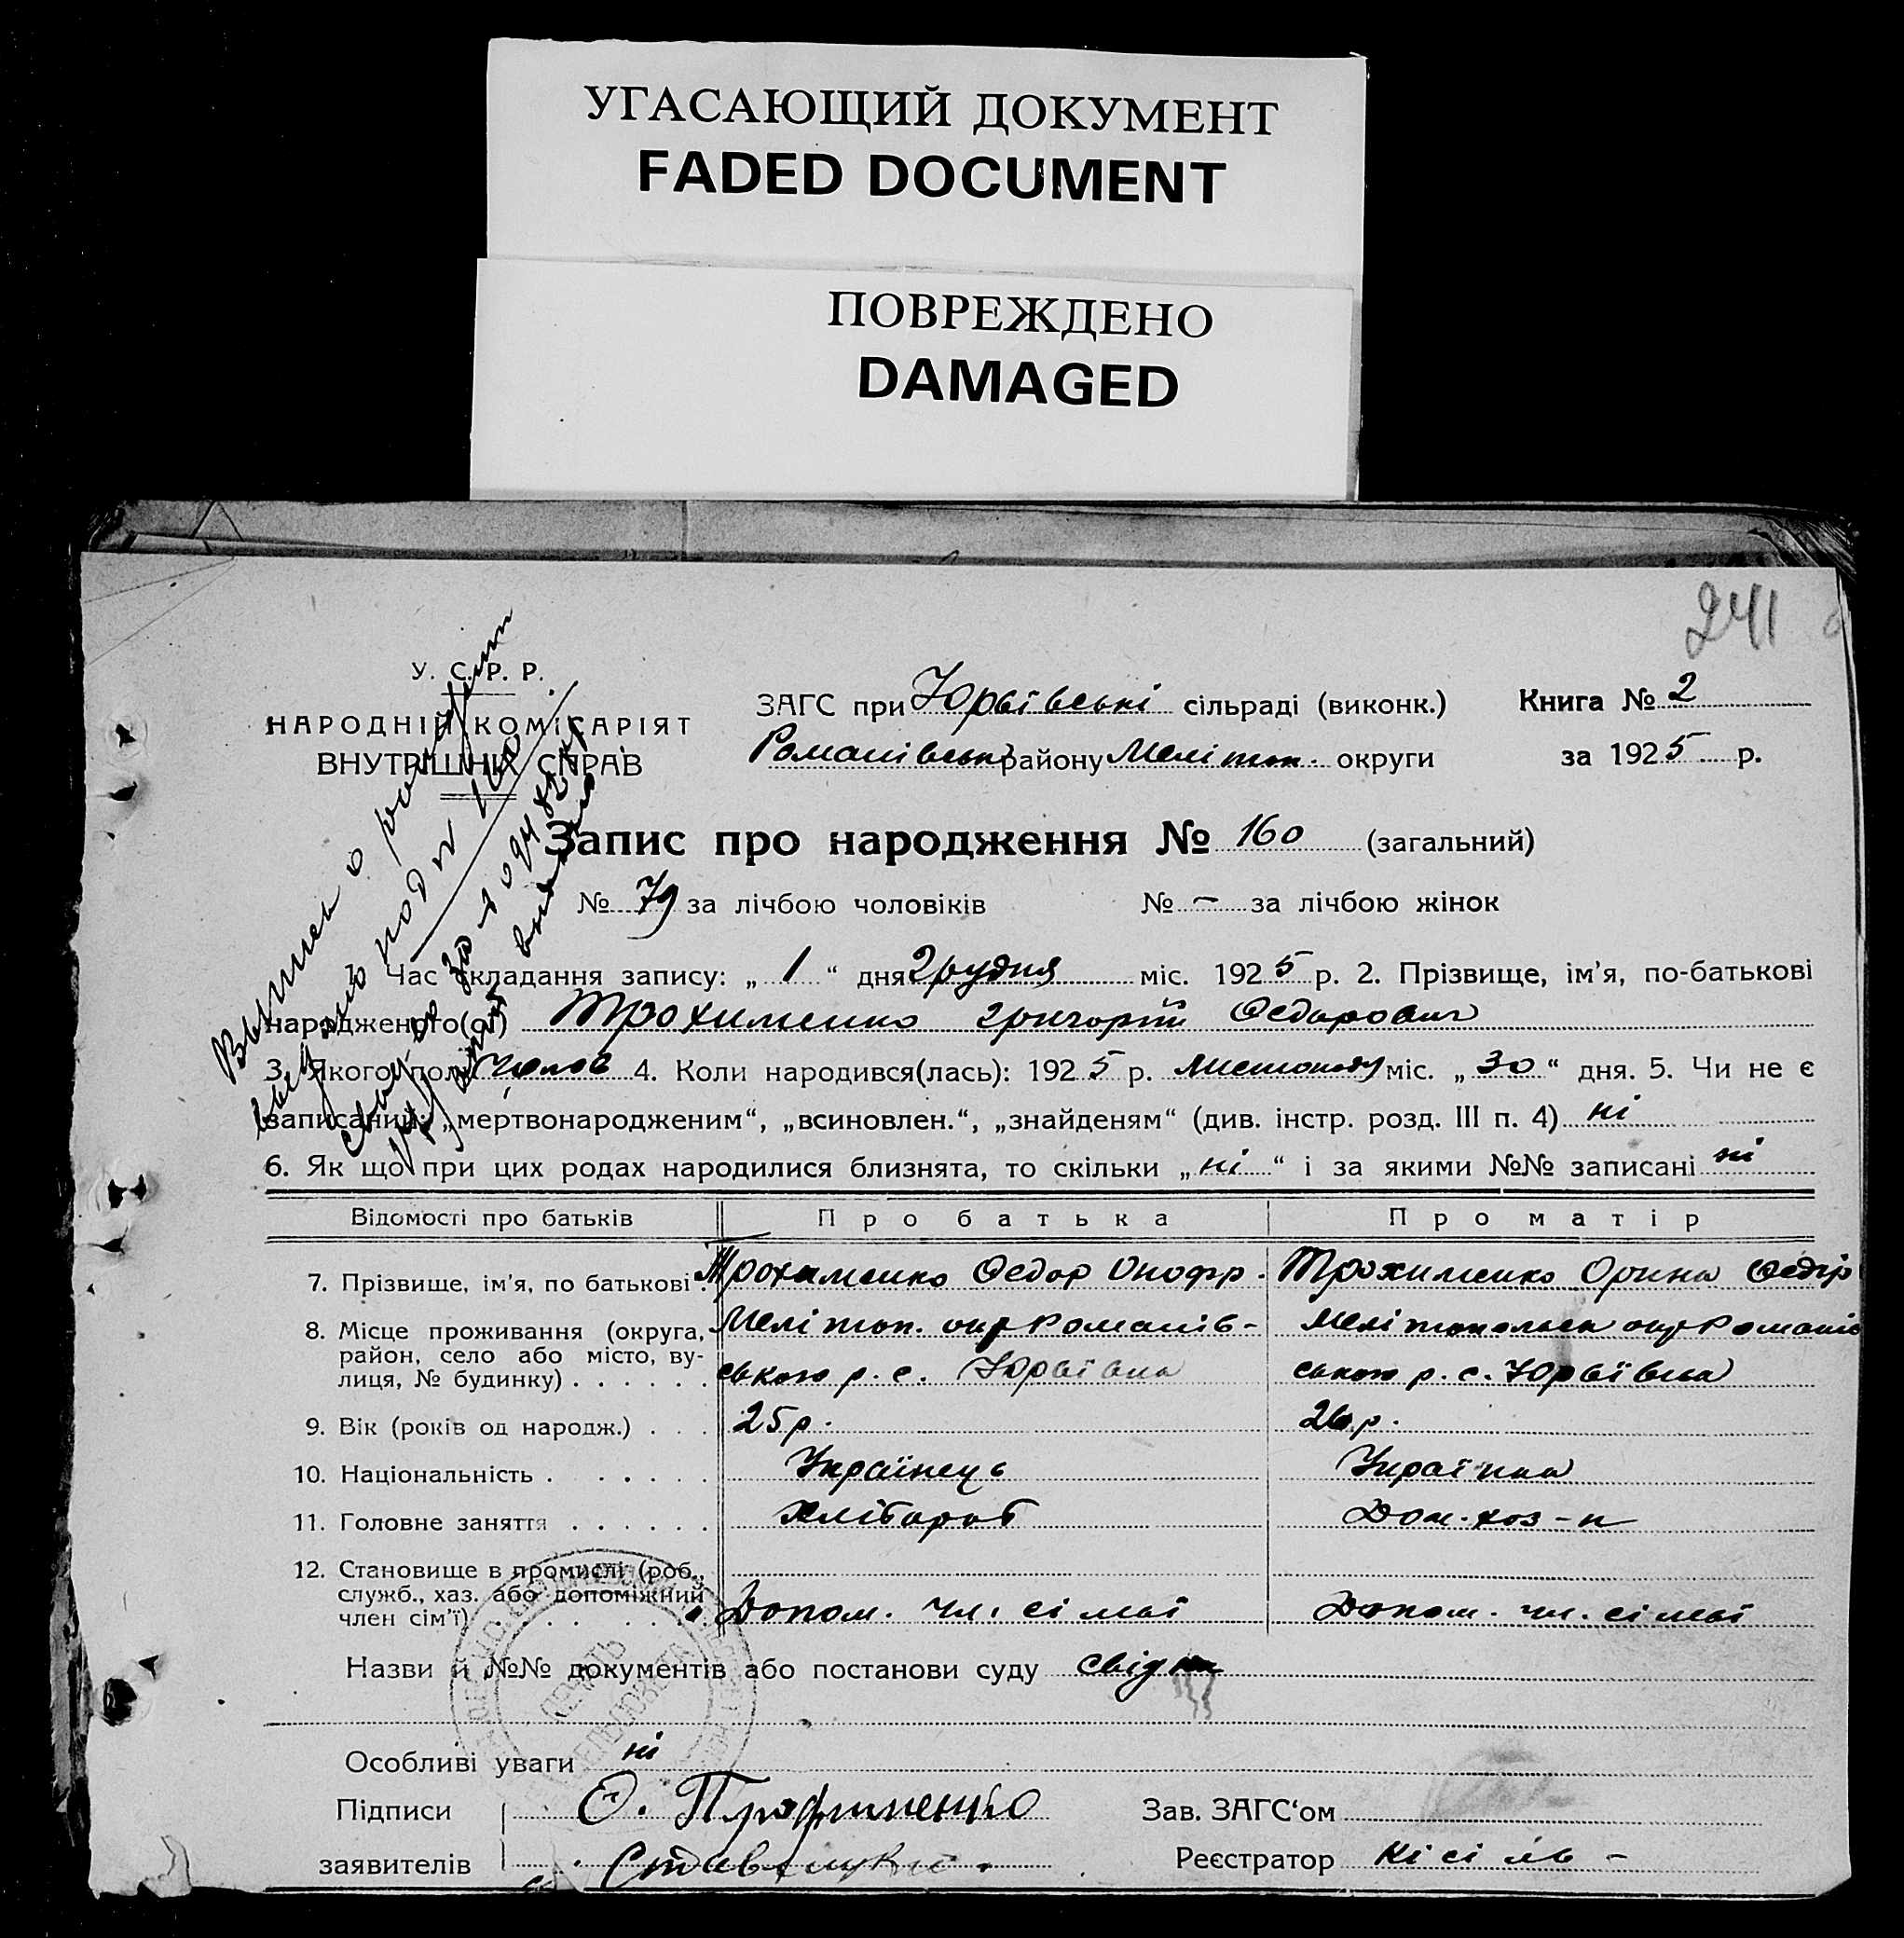 УГАСАЮЩИЙ ДОКУМЕНТ
FADED DOCUMENT
ПОВРЕЖДЕНО
DAMAGED
241
У. С. Р. Р.
НАРОДНІЙ КОМІСАРІЯТ
ВНУТРІШНІХ СПРАВ
ЗАГС при Юрьївські сільраді (виконк.) Книга № 2
Романівськ району Меліtоп. округи за 1925 р.
Запис про народження № 160 (загальний)
№ 79 за лічбою чоловіків № – за лічбою жінок
Час складання запису: „ 1 “ дня грудня міс. 1925 р. 2. Прізвище, ім'я, по-батькові
народженого(ої) Трохименко Григорій Федорович
3. Якого полу чолов 4. Коли народився(лась): 1925 р. листопаду міс. „ 30 “ дня. 5. Чи не є
записаний: „мертвонародженим“, „всиновлен.“, „знайденям“ (див. інстр. розд. III п. 4) ні
6. Як що при цих родах народилися близнята, то скільки „ ні “ і за якими №№ записані ні
Відомості про батьків Про батька Про матір
7. Прізвище, ім'я, по батькові. Трохименко Федор Онофр. Трохименко Орина Федір
8. Місце проживання (округа, Меліtоп. окр Романів- Мелітопольск окр Романів
район, село або місто, ву- ського р. с. Юрьївка ського р. с. Юрьївка
лиця, № будинку)
9. Вік (років од народж.) 25 р. 26 р.
10. Національність Українець Українка
11. Головне заняття Хлібороб Дом. хоз-к
12. Становище в промислі (роб.,
служб., хаз. або допоміжний
член сім'ї) Допом. чл. сімьї Допом. чл. сімьї
Назви й №№ документів або постанови суду свідки
Особливі уваги ні
Підписи Ф. Трофименко Зав. ЗАГС'ом
заявителів Реєстратор Кісіль –